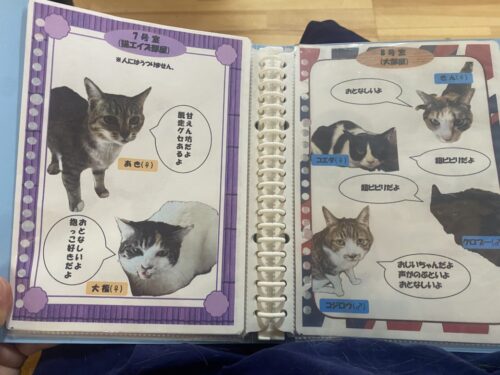 7号室
(猫エイズ部屋)
※人にはうつりません。
甘えん坊だよ
脱走グセあるよ
あき(♀)
おとなしいよ
抱っこ好きだよ
大福(♀)
8号室
(大部屋)
きん(♀)
おとなしいよ
コエダ(♀)
超ビビリだよ
超ビビリだよ
クロブー(♂)
おじいちゃんだよ
声がのぶといよ
おとなしいよ
コジロウ(♂)